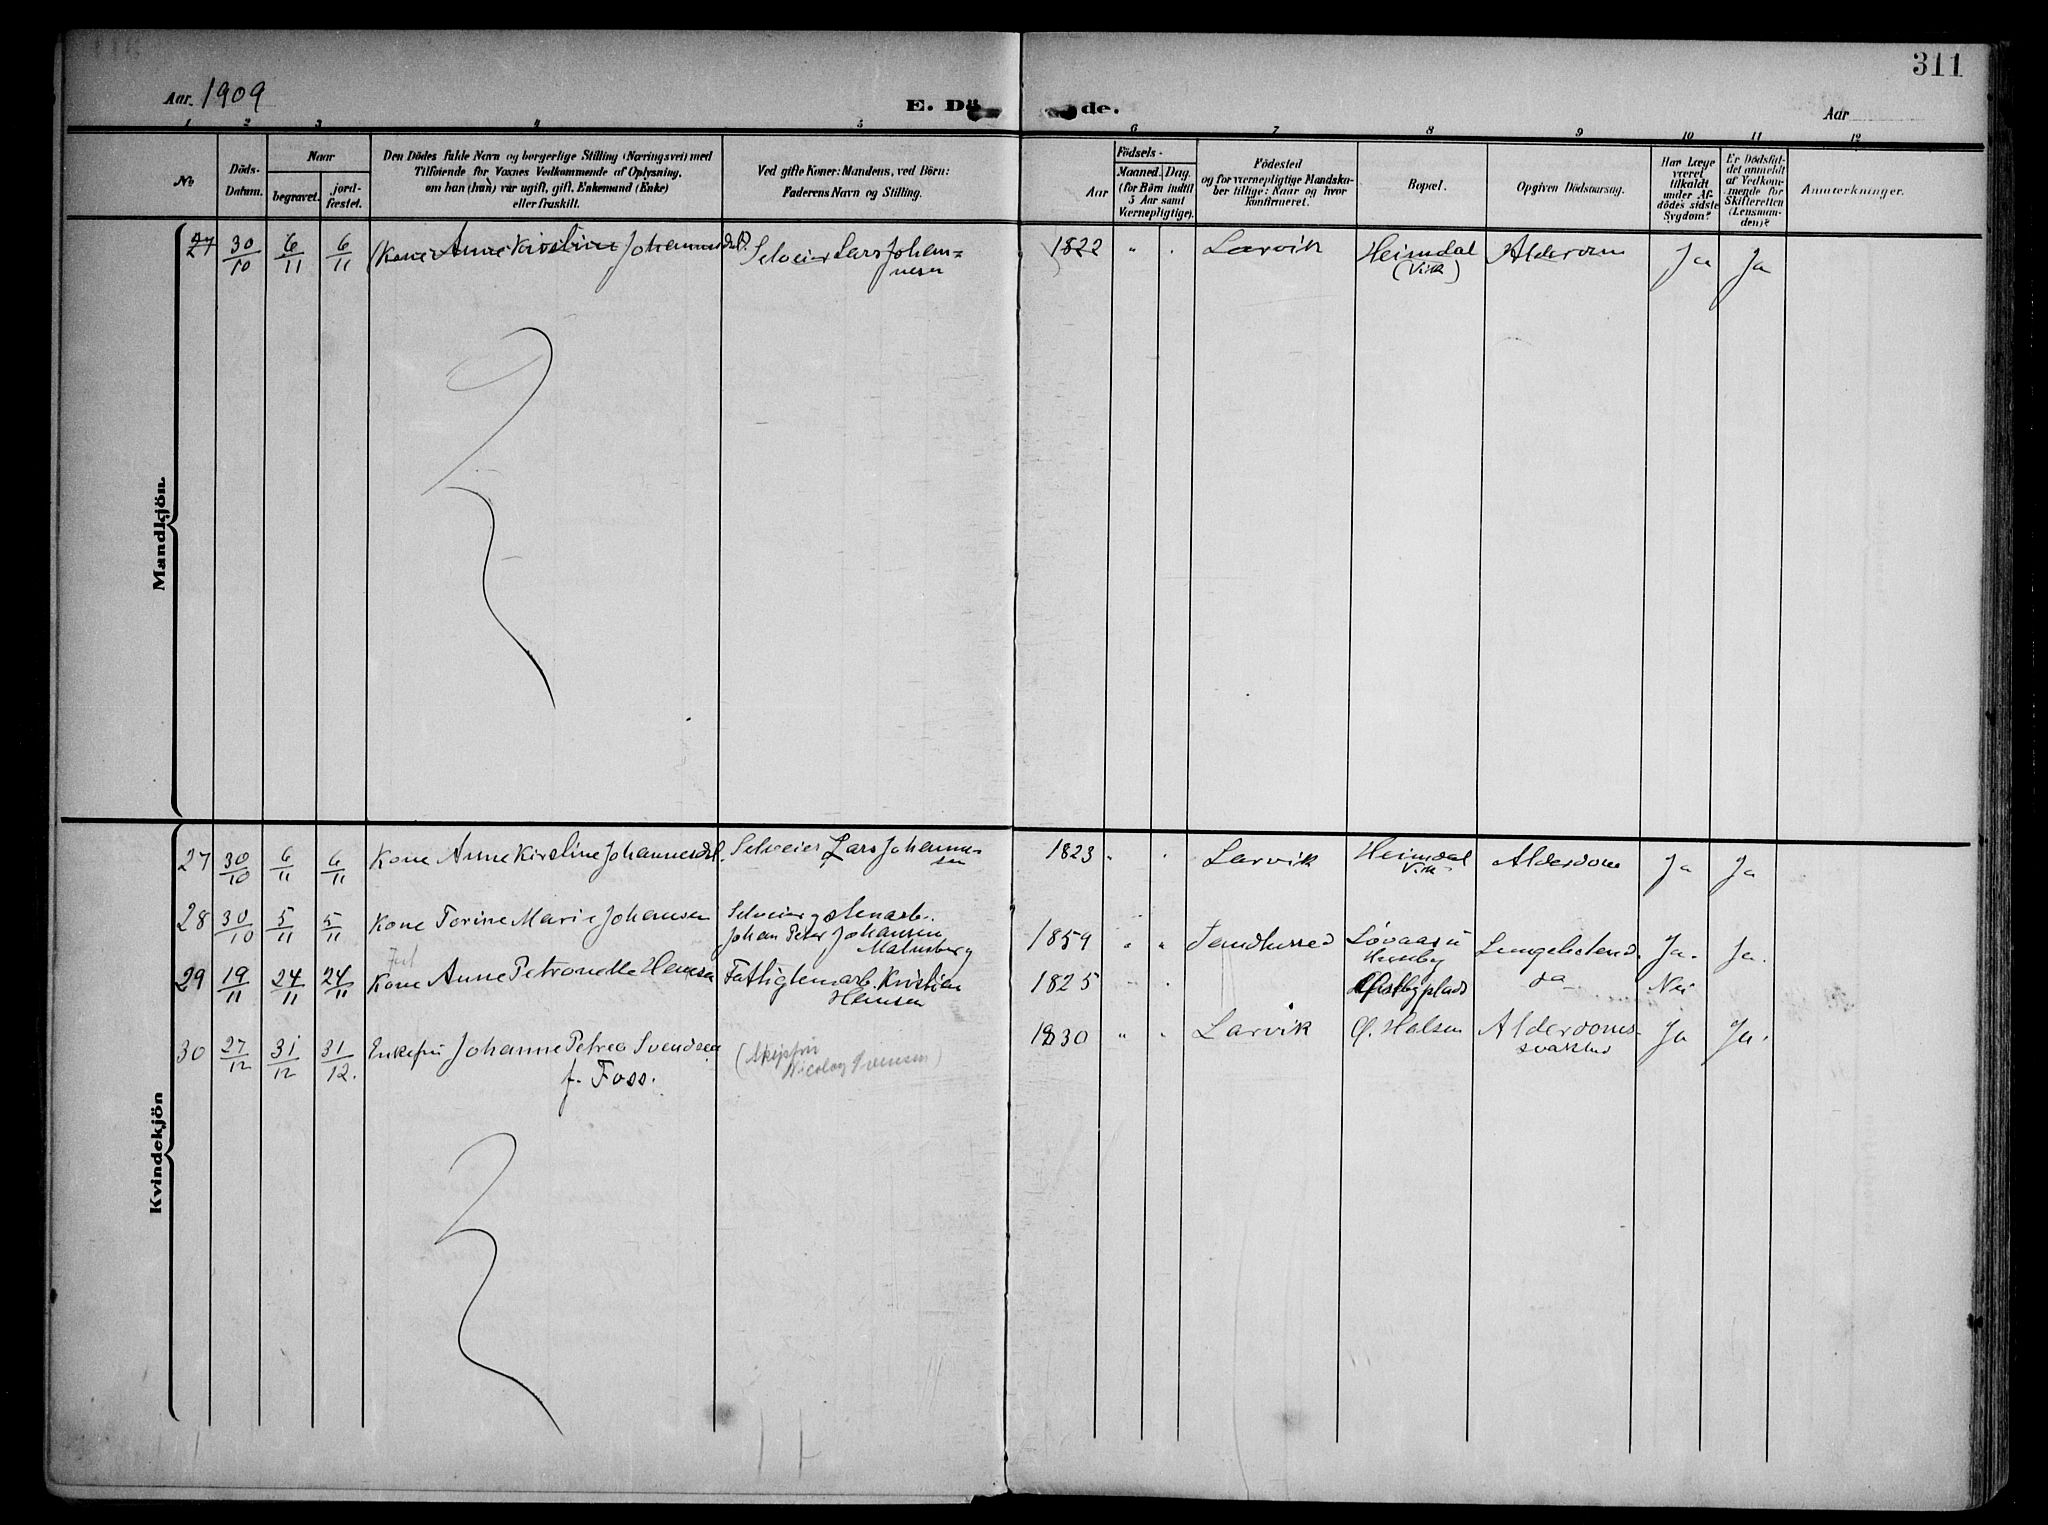 311
Aar. 1909
E. Dö de.
Aar
1 2 3 4 5 6 7 8 9 10 11 12
No
Döds-
Datum.
Naar
begravet.
jord-
fæstet.
Den Dödes fulde Navn og borgerlige Stilling (Næringsvei) med
Tilföiende for Voxnes Vedkommende af Oplysning,
om han (hun) var ugift, gift, Enkemand (Enke)
eller fraskilt.
Ved gifte Koner: Mandens, ved Börn:
Faderens Navn og Stilling.
Födsels-
Aar
Maaned. Dag.
(for Börn indtil
5 Aar samt
Værnepligtige).
Födested
og for værnepligtige Mandska-
ber tillige: Naar og hvor
konfirmeret.
Bopæl.
Opgiven Dödsaarsag.
Har Læge
været
tilkaldt
under Af-
dödes sidste
Sygdom?
Er Dödsfal-
det anmeldt
af Vedkom-
mende for
Skifteretten
(Lensman-
den)?
Anmærkninger.
Mandkjön.
27 30/10 6/11 6/11 (Kone Anne Kirstine Johannesdt). Selveier Lars Johan-
nesen
1822 " . Larvik Heimdal
(Vik) Alderdom Ja Ja
Kvindekjön
27 30/10 6/11 6/11 Kone Anne Kirstine Johannesdt. Selveier Lars Johanne-
sen
1823 " . Larvik Heimdal
Vik Alderdom Ja Ja
28 30/10 5/11 5/11 Kone Torine Marie Johansen Selveier og stenarb.
Johan Peter Johansen
Malmberg
1859 " " Løvaas u
Husby Ja. Ja.
29 19/11 24/11 24/11 Kone Anne Petronelle Hansen Fattiglem arb. Kristian
Hansen
1825 " . Østbyplads da Nei
30 27/12 31/12 31/12. Enkefru Johanne Petrea Svendsen
f. Foss.
(Skipsfri
Nicolay Svensen)
1830 " " Larvik Ø. Halsen Alderdoms-
svakhed Ja Ja.